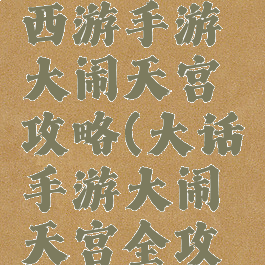 西游手游
大闹天宫
攻略(大话
手游大闹
天宫全攻